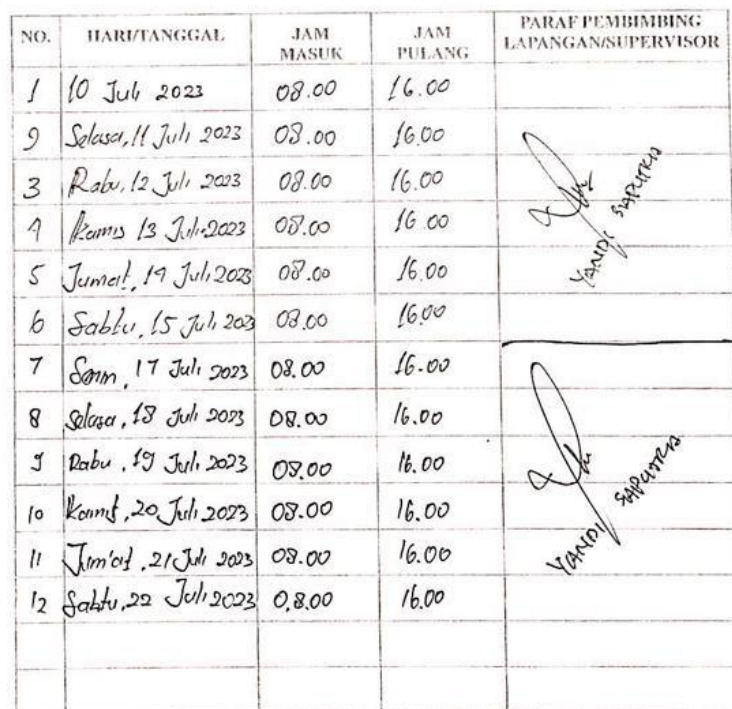 NO. HARI/TANGGAL JAM MASUK JAM PULANG PARAF PEMBIMBING LAPANGAN/SUPERVISOR
1 10 Juli 2023 08.00 16.00
2 Selasa, 11 Juli 2023 08.00 16.00
3 Rabu, 12 Juli 2023 08.00 16.00
4 Kamis 13 Juli 2023 08.00 16.00
5 Jumat, 14 Juli 2023 08.00 16.00
6 Sabtu, 15 Juli 2023 08.00 16.00
YANDI SAPUTRA
7 Senin, 17 Juli 2023 08.00 16.00
8 Selasa, 18 Juli 2023 08.00 16.00
9 Rabu, 19 Juli 2023 08.00 16.00
10 Kamis, 20 Juli 2023 08.00 16.00
11 Jum'at, 21 Juli 2023 08.00 16.00
12 Sabtu, 22 Juli 2023 0.8.00 16.00
YANDI SAPUTRA